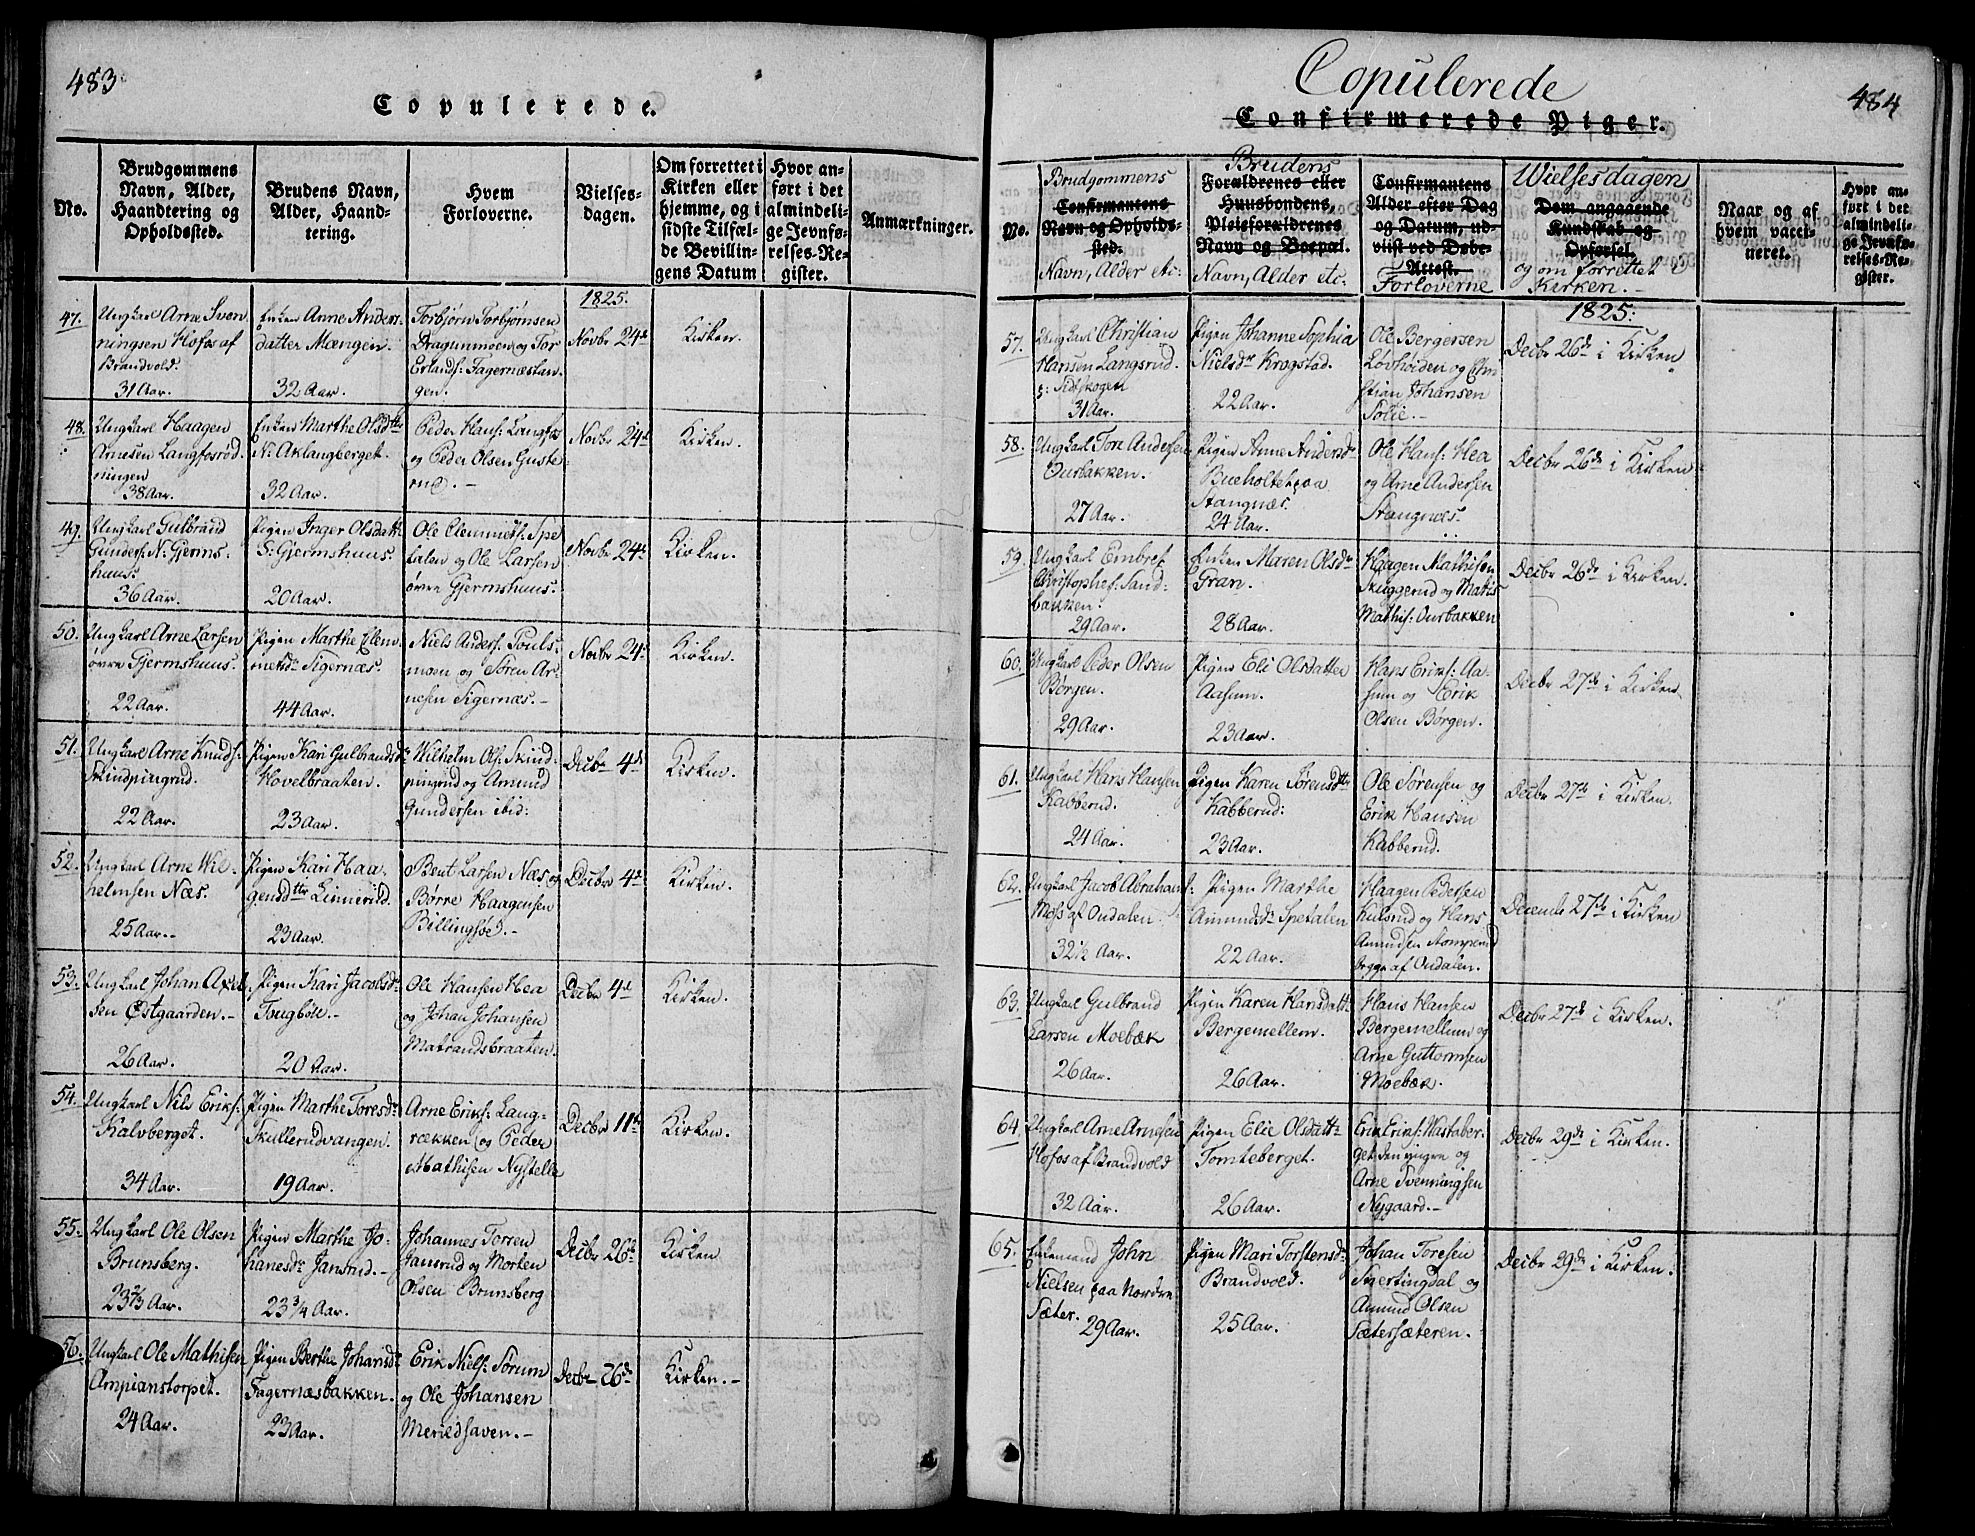 483
Copulerede.
No.
Brudgommens
Navn, Alder,
Haandtering og
Opholdssted.
Brudens Navn,
Alder, Haand-
tering.
Hvem
Forloverne.
Vielses-
dagen.
Om forrettet i
Kirken eller
hjemme, og i
sidste Tilfæl-
de Bevillin-
gens Datum
Hvor an-
ført i det
almindeli-
ge Jevnfø-
relses-Re-
gister.
Anmærkninger.
1825.
47.
Ungkarl Arne Sven
ningsen Hofos af
Brandvold.
31 Aar.
Enken Anne Anders
datter Mængen.
32 Aar.
Torbjørn Torbjørnsen
Dragunmoen og Tor
Erlands: Fagernæstan
gen.
Novbr 24de
Kirken.
48.
Ungkarl Haagen
Arnesen Langfosrød
ningen
38 Aar.
Enken Marthe Olsdttr
N: Aklangberget.
32 Aar.
Peder Hans: Langfos
og Peder Olsen Guste
rud. –
Novbr 24de
Kirken.
49.
Ungkarl Gulbrand
Gunders: N: Gjerms-
huus.
36 Aar.
Pigen Inger Olsdatt:
S: Gjermshuus.
20 Aar.
Ole Clemmets: Spe
talen og Ole Larsen
øvre Gjermshuus.
Novbr 24de
Kirken.
50.
Ungkarl Arne Larsen
øvre Gjermshuus.
22 Aar.
Pigen Marthe Clem
metsdr Sigernæs.
44 Aar.
Niels Anders: Pouls-
moen og Søren Ar-
nesen Sigernæs. –
Novbr 24de
Kirken.
51.
Ungkarl Arne Knuds:
Skindpungrud.
22 Aar.
Pigen Kari Gulbrandsdr
Hovelbraaten.
23 Aar.
Wilhelm Ols: Skind-
pungrud og Amund
Gundersen ibid:
Decbr 4de
Kirken.
52.
Ungkarl Arne Wil-
helmsen Næs.
25 Aar. –
Pigen Kari Haa-
gensdttr Linnerud.
23 Aar.
Bent Larsen Næs og
Børre Haagensen
Billingsøe. –
Decbr 4de
Kirken.
53.
Ungkarl Johan Axel
sen Østgaarden. –
26 Aar.
Pigen Kari Jacobsdr
Tougbøl. –
20 Aar.
Ole Hansen Hea
og Johan Johansen
Matrandsbraaten.
Decbr 4de
Kirken.
54.
Ungkarl Nils Eriks:
Kalvberget.
34 Aar.
Pigen Marthe Toresdr
Skullerudvangen.
19 Aar.
Arne Eriks: Lang-
rækken og Peder
Mathisen Nystelle
Decbr 11te
Kirken.
55.
Ungkarl Ole Olsen
Brunsberg.
23 2/3 Aar.
Pigen Marthe Jo-
hanesdr Jansrud. –
23 3/4 Aar.
Johannes Torren
Jansrud og Morten
Olsen Brunsberg
Decbr 26de
Kirken
56.
Ungkarl Ole Mathisen
Ampianstorpet.
24 Aar.
Pigen Berthe Johansdr
Fagernæsbakken.
23 Aar.
Erik Niels: Sørum
og Ole Johansen
Meriedhaven. –
Decbr 26de
Kirken. –
Copulerede
484
Confirmerede Piger.
No.
Brudgommens
Confirmantens
Navn og Opholds-
sted.
Navn, Alder etc:
Brudens
Forældrenes eller
Huusbondens,
Pleieforældrenes
Navn og Boepæl.
Navn, Alder etc.
Confirmantens
Alder efter Dag
og Datum, ud-
viist ved Døbe-
Attest.
Forloverne
Wielsesdagen
Dom angaaende
Kundskab og
Opførsel.
og om forrettet i
Kirken. –
Naar og af
hvem vacci-
neret.
Hvor an-
ført i det
almindeli-
ge Jevnfø-
relses-Re-
gister.
1825:
57.
Ungkarl Christian
Hansen Langsrud
31 Aar.
Pigen Johanne Sophia
Nielsdr Krogstad.
22 Aar.
Ole Bergersen
Løvhøiden og Chri
stian Johansen
Solie. –
Decbr 26de i Kirken
58.
Ungkarl Tore Andersen
Ourbakken.
27 Aar.
Pigen Anne Andersdr
Bueholtet paa
Stangnæs.
24 Aar.
Ole Hans: Hea
og Arne Andersen
Stangnæs.
Decbr 26de i Kirken
59.
Ungkarl Embret
Christophes: Sand-
bakken.
29 Aar.
Enken Maren Olsdr
Gran.
28 Aar.
Haagen Mathisen
Skuggerud og Mathis
Mathis: Ourbakken
Decbr 26de i Kirken.
60.
Ungkarl Peder Olsen
Børgen.
29 Aar.
Pigen Eli Olsdatter
Aasum.
23 Aar.
Hans Eriks: Aa-
sum og Erik
Olsen Børgen.
Decbr 27de i Kirken.
61.
Ungkarl Hans Hansen
Kabberud.
24 Aar.
Pigen Karen Sørensdttr
Kabberud:
23 Aar.
Ole Sørensen og
Erik Hansen
Kabberud.
Decbr 27de i Kirken.
62.
Ungkarl Jacob Abrahams:
Moss af Oudalen
32½ Aar.
Pigen Marthe
Amundsdr Spetalen
22 Aar.
Haagen Pedersen
Kulsrud og Hans
Amundsen Stomperud
begge af Oudalen.
Decembr 27de i Kirken
63.
Ungkarl Gulbrand
Larsen Moebæk
26 Aar.
Pigen Karen Hansdatt:
Bergemellem.
26 Aar.
Hans Hansen
Bergemellum og
Arne Guttormsen
Moebæk.
Decbr 27de i Kirken.
64.
Ungkarl Arne Arnesen
Hofos af Brandvold
32 Aar.
Pigen Elie Olsdatt:
Tomteberget.
26 Aar.
Erik Eriks: Mastaber-
get den yngre og
Arne Svenningsen
Nygaard. –
Decbr 29de i Kirken.
65.
Enkemand John
Nielsen paa Nordre
Sæter.
29 Aar.
Pigen Mari Torstensdr
Brandvold.
25 Aar.
Johan Toresen
Sigertingdal og
Amund Olsen
Sætersæteren.
Decbr 29de i Kirken.